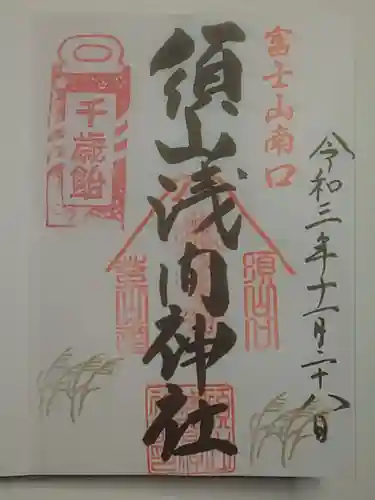 富士山南口
令和三年十一月二十八日
須山浅間神社
千歳飴
須山口
登山道